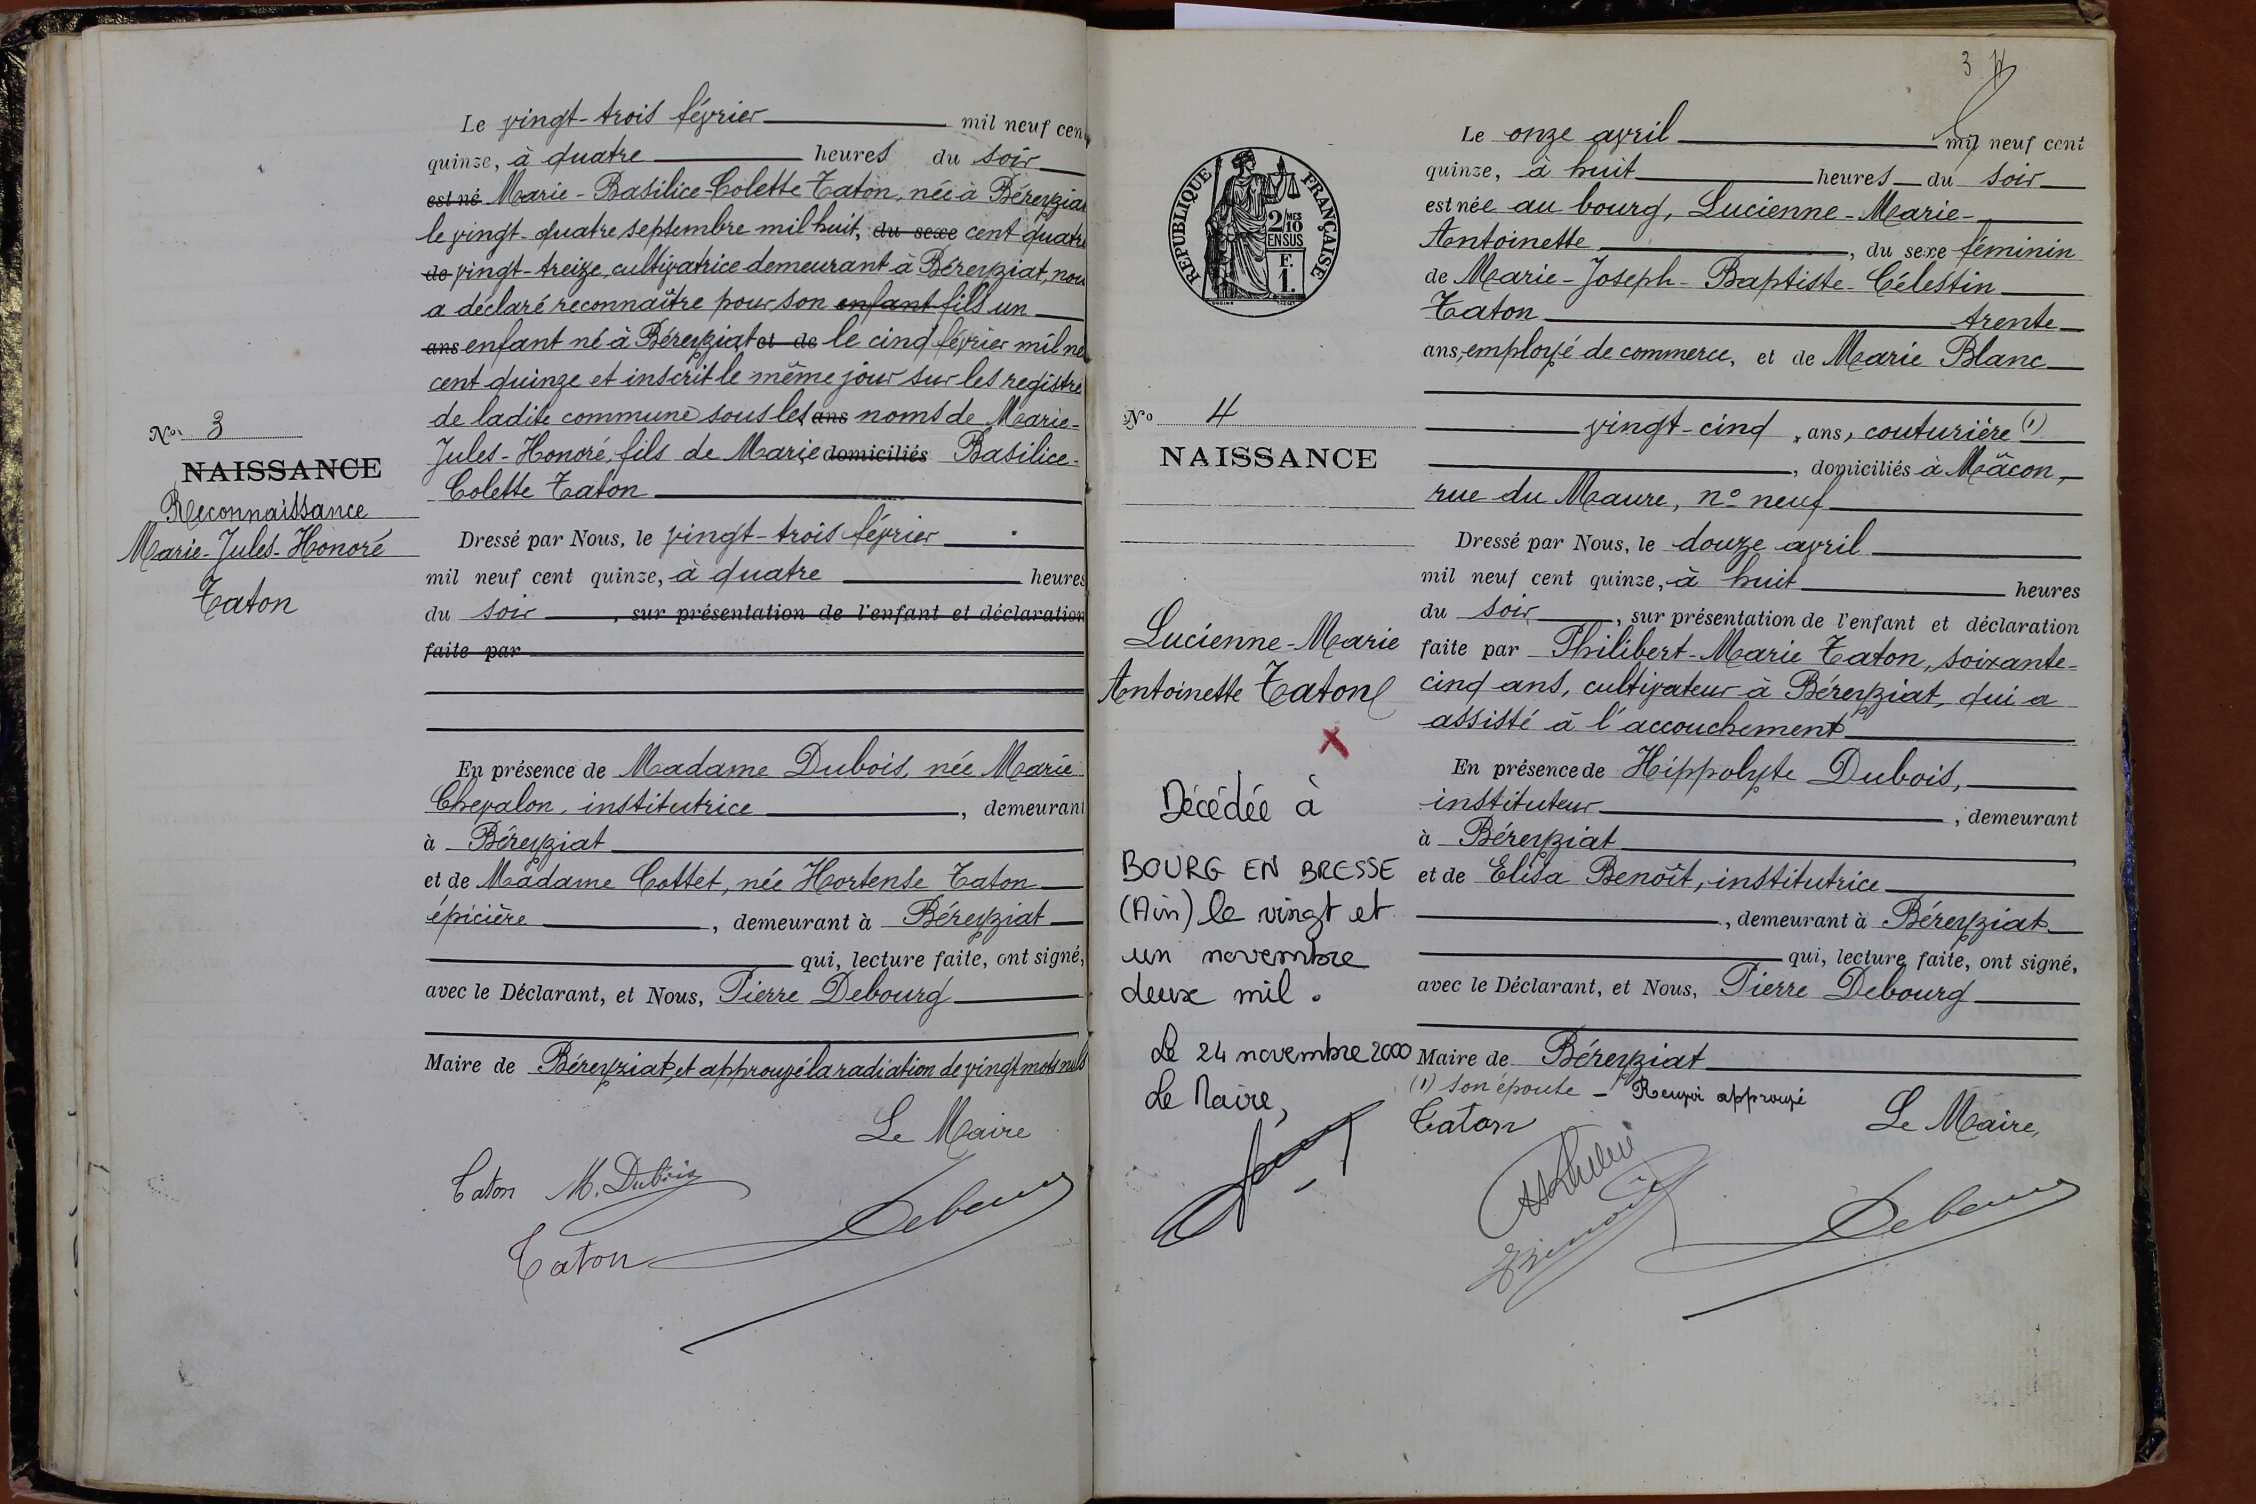 Le vingt-trois février mil neuf cen
quinze, à quatre heures du soir
est né Marie-Basilice-Colette Taton, née à Béreyziat
le vingt-quatre septembre mil huit, du sexe cent quatre
de vingt-treize, cultivatrice demeurant à Béreyziat, nous
a déclaré reconnaître pour son enfant fils un
ans enfant né à Béreyziat et de le cinq février mil ne
cent quinze et inscrit le même jour sur les registre
de ladite commune sous les ans noms de Marie-
Jules-Honoré, fils de Marie domiciliés Basilice-
Colette Taton
No 3
NAISSANCE
Reconnaissance
Marie-Jules-Honoré
Taton
Dressé par Nous, le vingt-trois février
mil neuf cent quinze, à quatre heures
du soir, sur présentation de l'enfant et déclaration
faite par
En présence de Madame Dubois, née Marie
Chevalon, institutrice, demeurant
à Béreyziat
et de Madame Cottet, née Hortense Taton
épicière, demeurant à Béreyziat
qui, lecture faite, ont signé,
avec le Déclarant, et Nous, Pierre Debourg
Maire de Béreyziat, et approuvé la radiation de vingt mots nuls
Le Maire
Taton M. Dubois
Taton Debourg
3 4
RÉPUBLIQUE FRANÇAISE
2/10 MES
EN SUS
F.
1.
Le onze avril mil neuf cent
quinze, à huit heures du soir
est née au bourg, Lucienne-Marie-
Antoinette, du sexe féminin
de Marie-Joseph-Baptiste-Célestin
Taton trente
ans, employé de commerce, et de Marie Blanc
vingt-cinq ans, couturière (1)
, domiciliés à Mâcon,
rue du Maure, no neuf
No 4
NAISSANCE
Lucienne-Marie
Antoinette Taton
Décédée à
BOURG EN BRESSE
(Ain) le vingt et
un novembre
deux mil.
Le 24 novembre 2000
Le Maire,
Dressé par Nous, le douze avril
mil neuf cent quinze, à huit heures
du soir, sur présentation de l'enfant et déclaration
faite par Philibert-Marie Taton, soixante-
cinq ans, cultivateur à Béreyziat, qui a
assisté à l'accouchement
En présence de Hippolyte Dubois,
instituteur, demeurant
à Béreyziat
et de Elisa Benoît, institutrice
, demeurant à Béreyziat
qui, lecture faite, ont signé,
avec le Déclarant, et Nous, Pierre Debourg
Maire de Béreyziat
(1) son épouse - Renvoi approuvé
Taton Le Maire,
Debourg